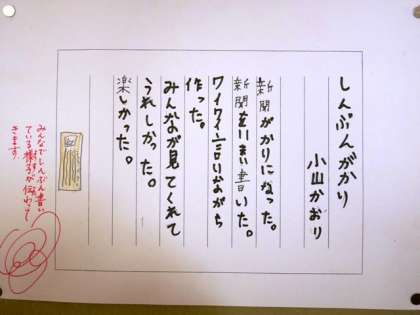 しんぶんがかり
小山かおり
新聞がかりになった。
新聞を1まい書いた。
ワイワイ言いながら
作った。
みんなが見てくれて
うれしかった。
楽しかった。
みんなでしんぶん書い
ている様子が伝わって
きます。